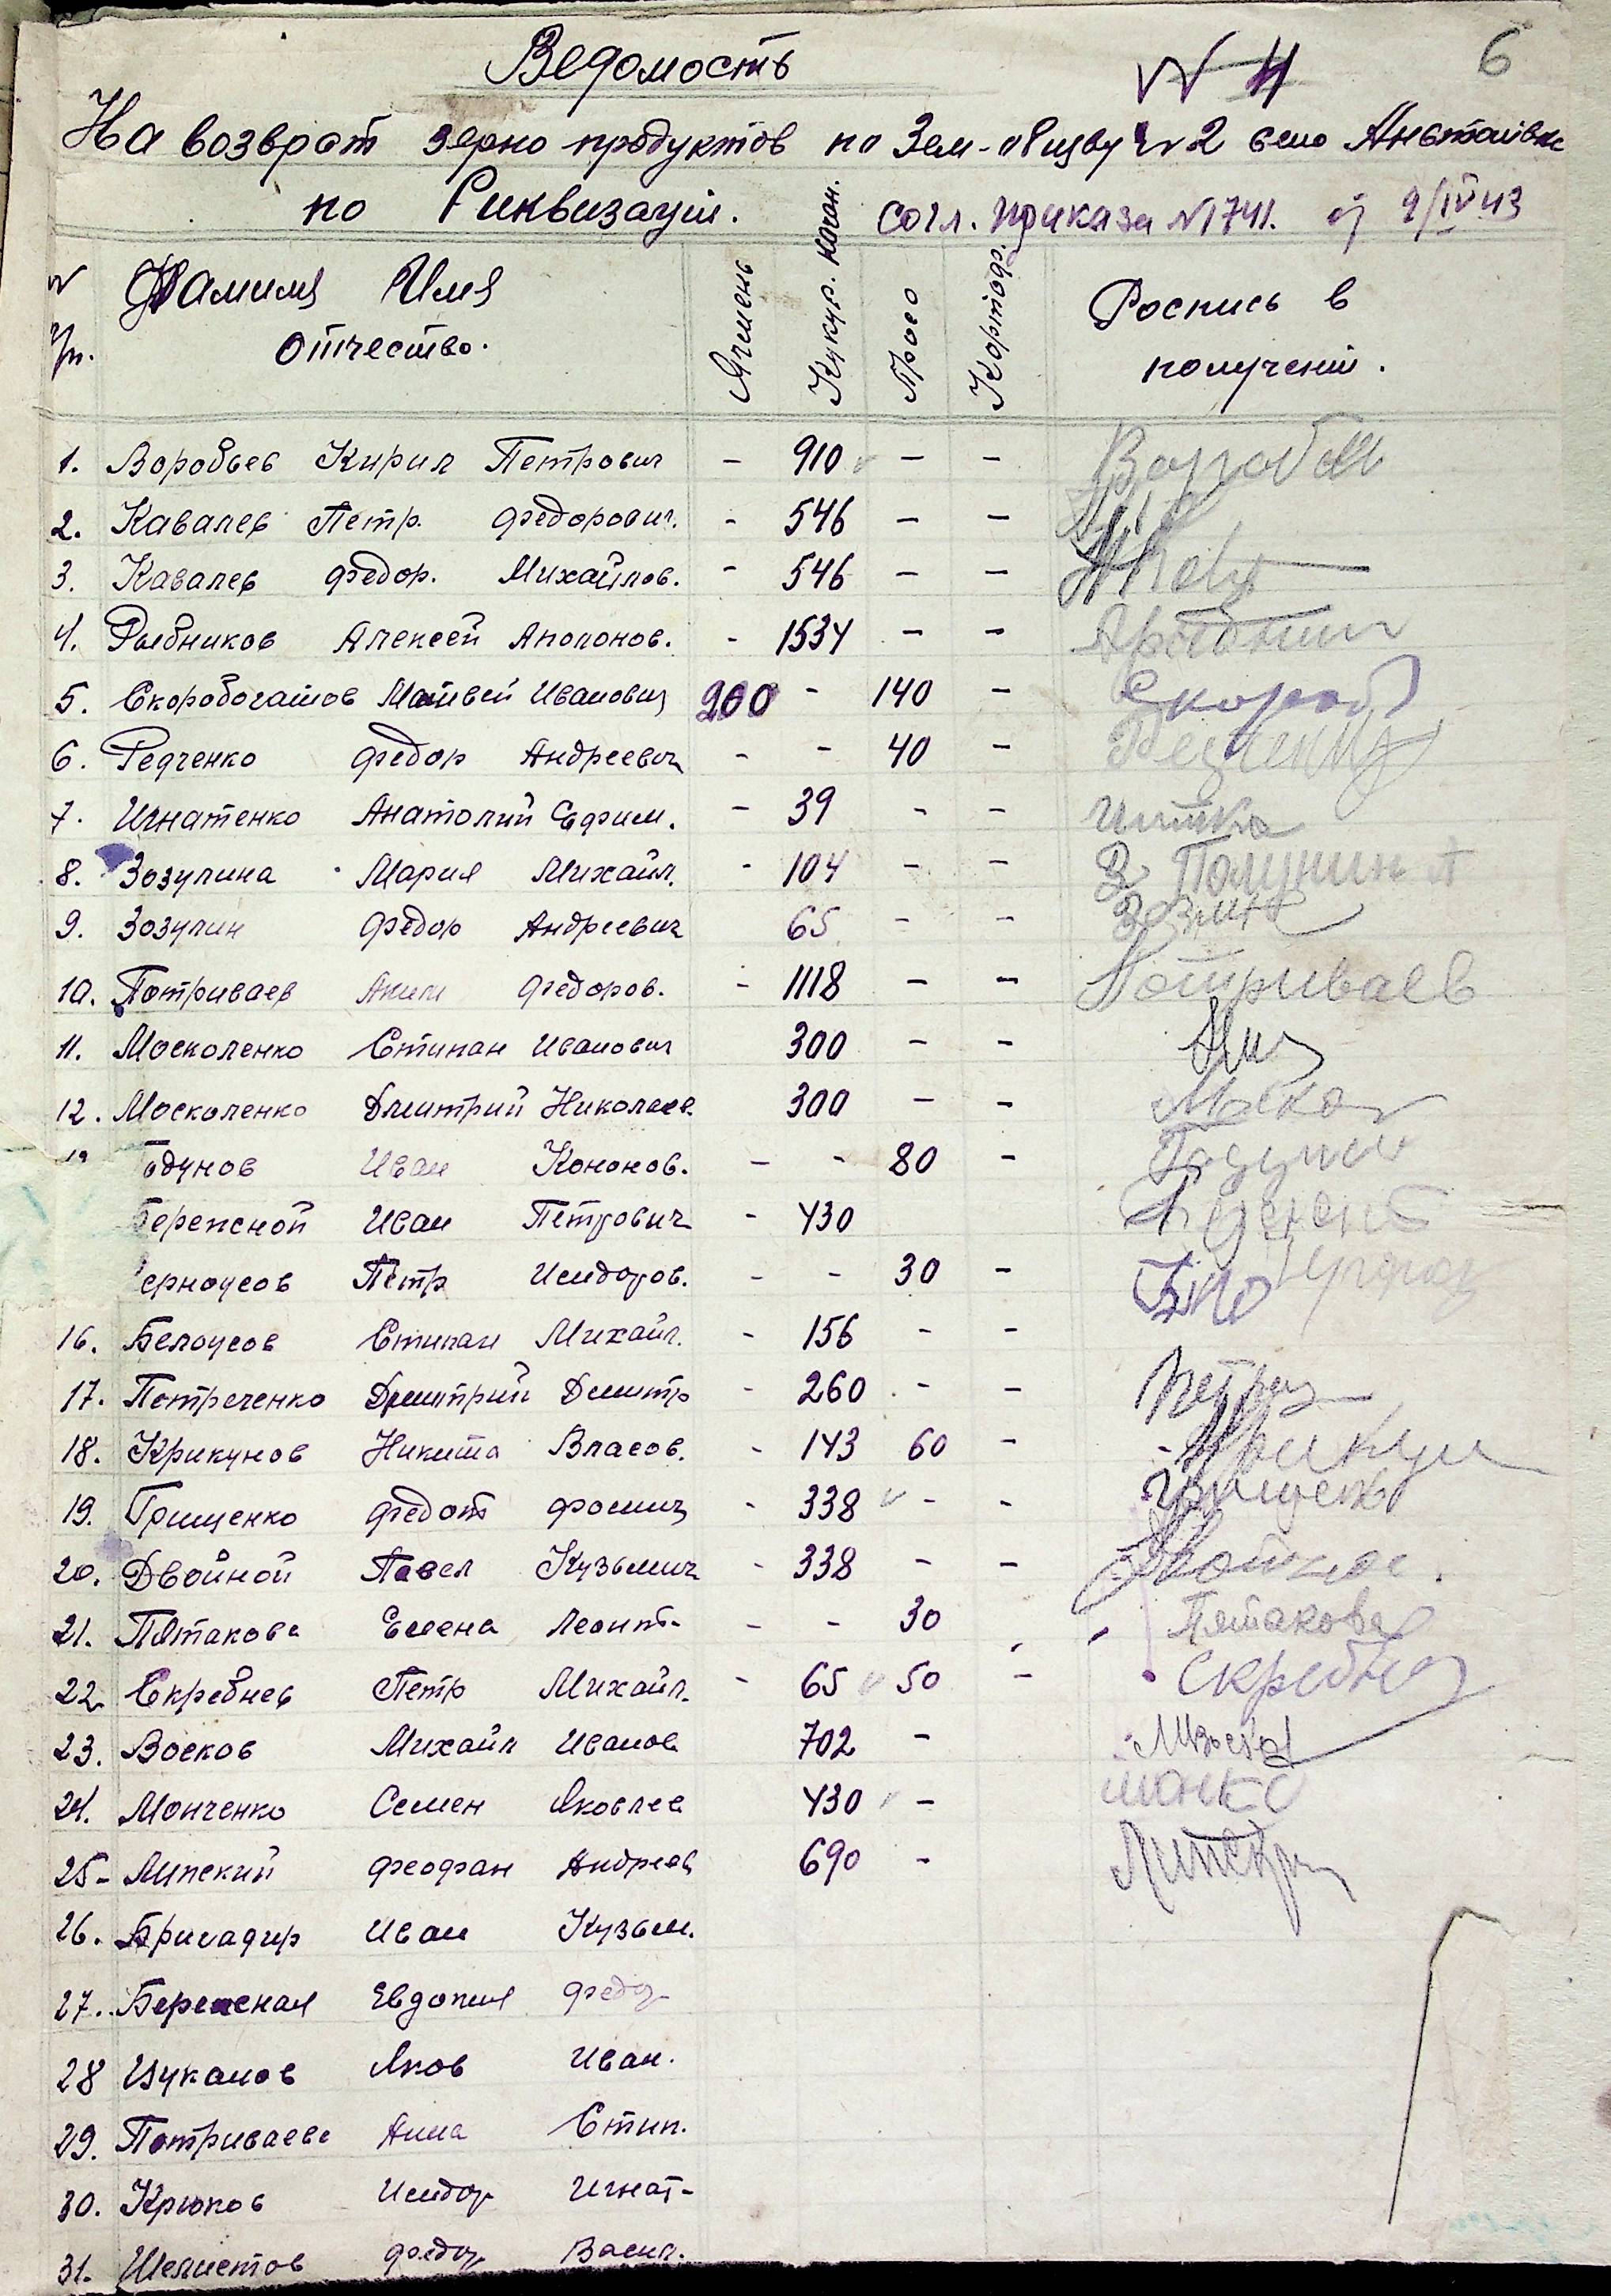 Ведомость
N 4
6
На возврот зерно продуктов по Зем-общву N 2 село Анастасівке
по Риквизаціи.
согл. приказа N 1741. от 9/IV 43
N п/п.
Фамилия Имя Отчество.
Ячмень
Кукур. качан.
Просо
Картофр.
Роспись в получении.
1. Воробьев Кирил Петрович - 910 - - Воробьев
2. Кавалев Петр. Федорович. - 546 - -
3. Кавалев Федор. Михайлов. - 546 - -
4. Рыбников Алексей Аполонов. - 1534 - -
5. Скоробогатов Матвей Иванович 200 - 140 - Скороб
6. Редченко Федор Андреевич - - 40 -
7. Игнатенко Анатолий Ефим. - 39 - -
8. Зозулина Мария Михайл. - 104 - - З Полунин А
9. Зозулин Федор Андреевич 65 - -
10. Потриваев Аким Федоров. - 1118 - - Потриваев
11. Москаленко Стипан Иванович 300 - -
12. Москаленко Дмитрий Николаев. 300 - - Москал
одунов Иван Кононов. - - 80 -
Бережной Иван Петрович - 430
ерноусов Петр Исидоров. - - 30 -
16. Белоусов Стипан Михайл. - 156 - -
17. Петреченко Дмитрий Дмитр - 260 - -
18. Крикунов Никита Власов. - 143 60 - Крикун
19. Грищенко Федот Фомич - 338 - - Грищенко
20. Двойной Павел Кузьмич - 338 - -
21. Пятакова Елена Леонт. - - 30 Пятакова
22. Скребнев Петр Михайл. - 65 50 - Скребнев
23. Восков Михайл Иванов 702 -
24. Манченко Семен Яковлев 430 - манко
25- Липский Феофан Андреев 690 -
26. Бригадир Иван Кузьм.
27. Бережная Евдокия Федор
28 Цуканов Яков Иван.
29. Потриваева Анна Стип.
30. Крюков Исидор Игнат-
31. Шелистов Федор Васил.